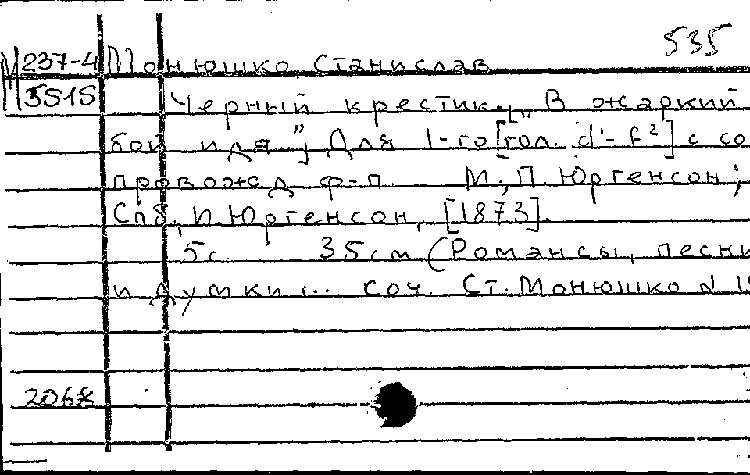 535
М 237-4 Монюшко, Станислав
3515
Черный крестик. „В жаркий
бой идя”, Для 1-го [гол. d'-f²] с со
провожд ф-п. М., П. Юргенсон;
Спб., И. Юргенсон, [1873].
5с. 35см (Романсы, песни
и думки... соч. Ст. Монюшко N